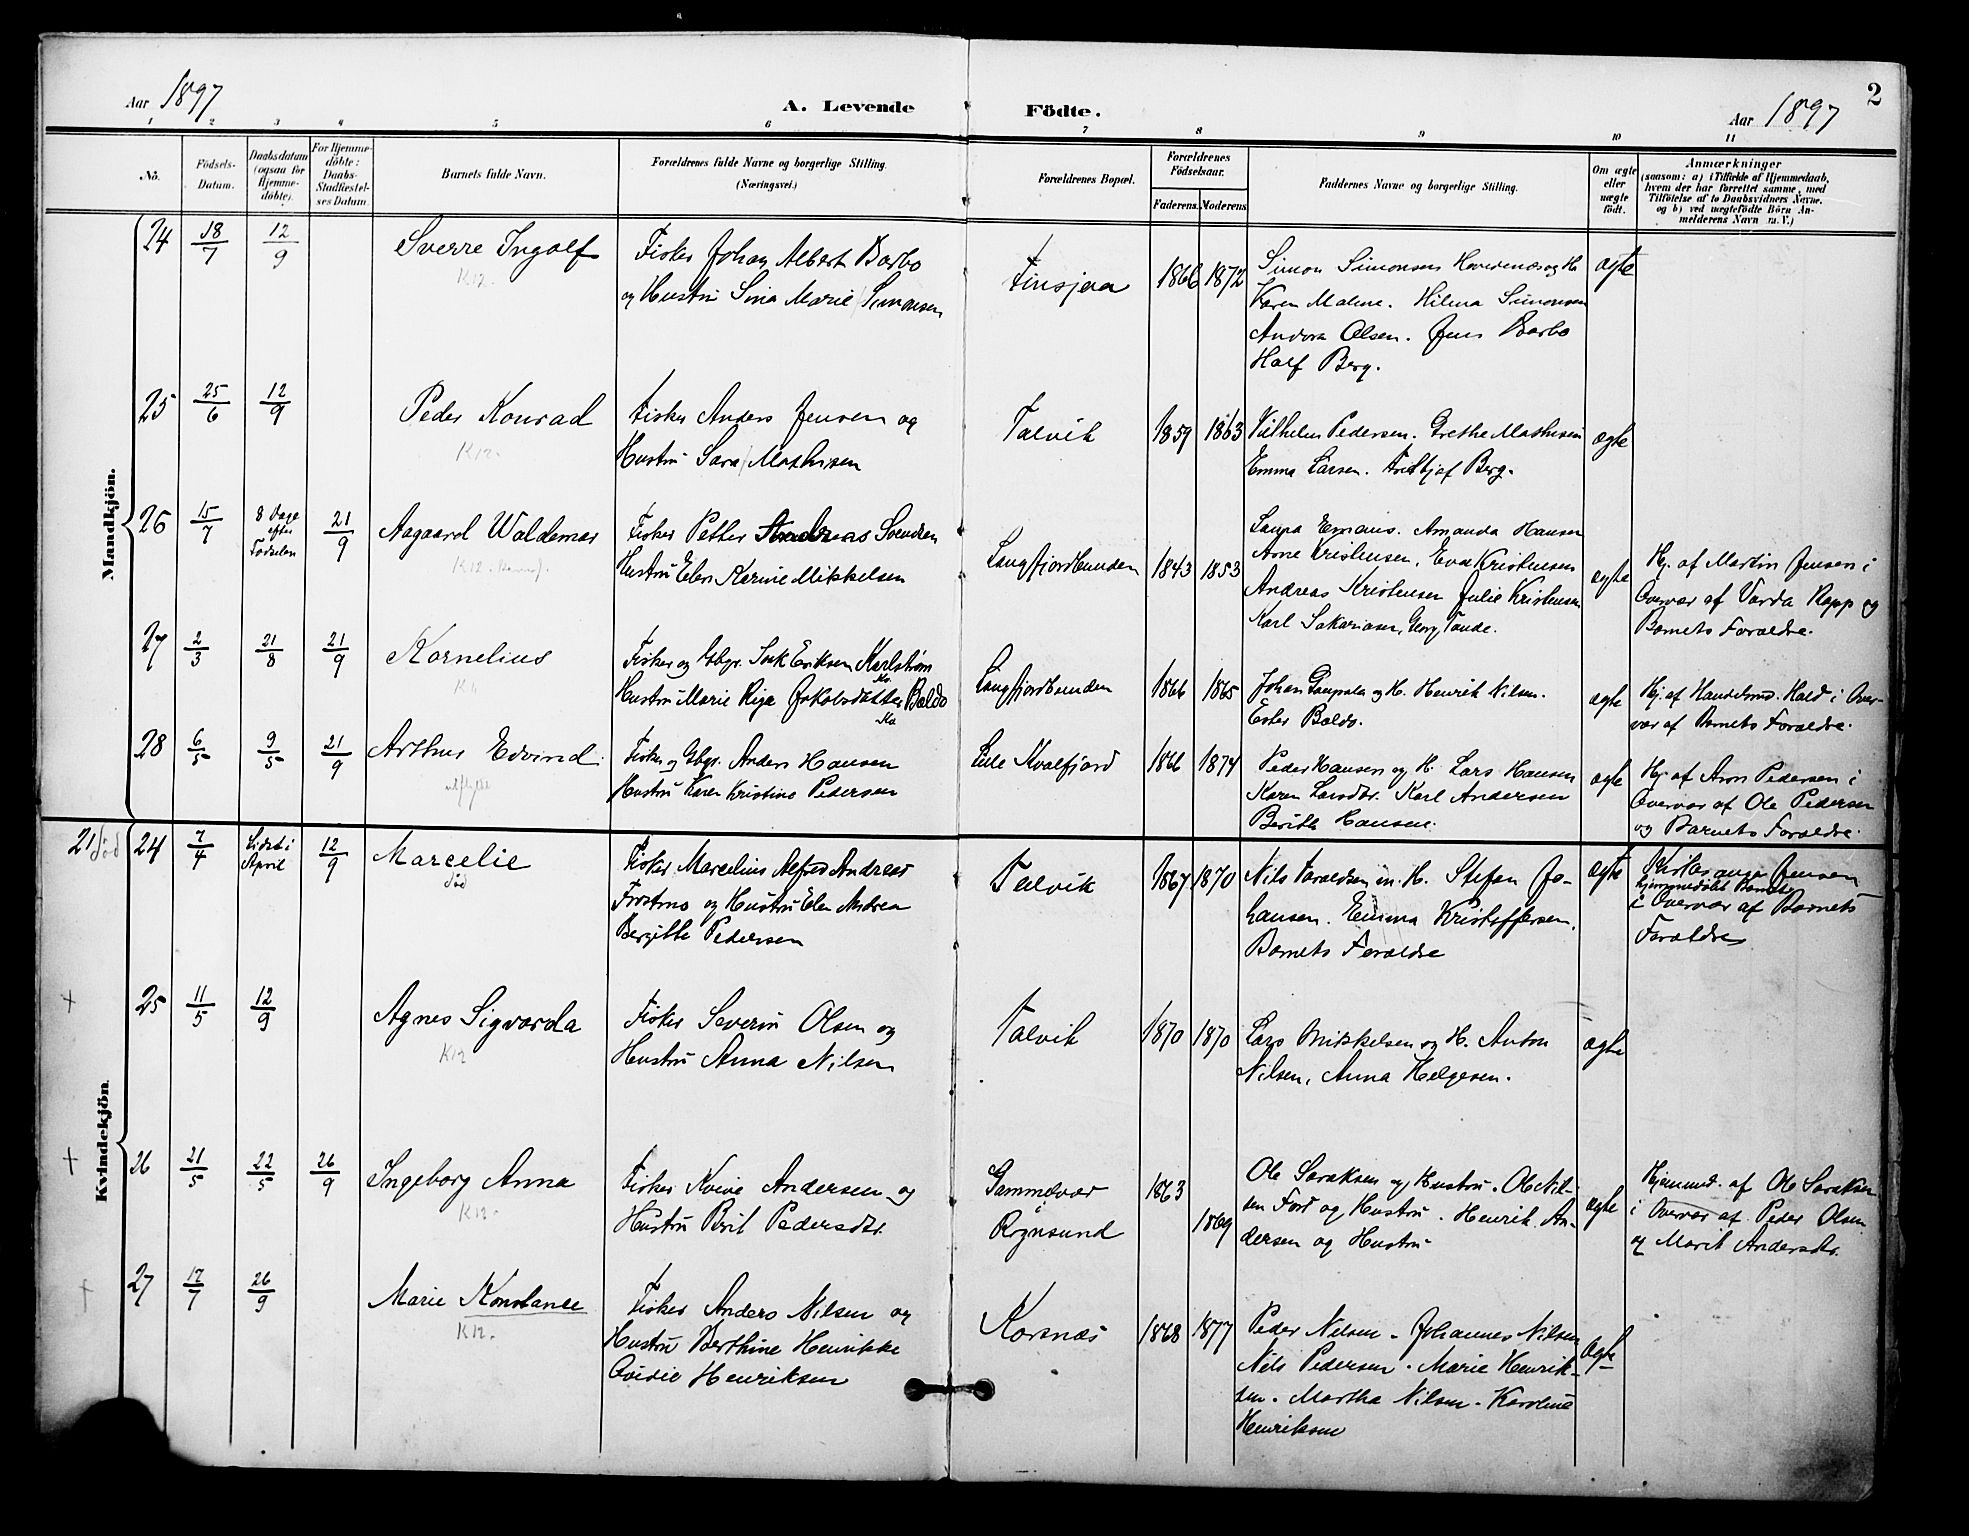 2
Aar 1897
A. Levende Födte.
Aar 1897
1 2 3 4 5 6 7 8 9 10 11
No.
Födsels-Datum.
Daabsdatum (ogsaa for Hjemme-döbte).
For Hjemme-döbte: Daabs-Stadfæstel-ses Datum.
Barnets fulde Navn.
Forældrenes fulde Navne og borgerlige Stilling.
(Næringsvei.)
Forældrenes Bopæl.
Forældrenes Födselsaar.
Faderens. Moderens.
Faddernes Navne og borgerlige Stilling.
Om ægte eller uægte födt.
Anmærkninger
(saasom: a) i Tilfælde af Hjemmedaab, hvem der har forrettet samme, med Tilföielse af to Daabsvidners Navne, og b) ved uægtefödte Börn An-melderens Navn m. V.)
Mandkjön.
24 18/7 12/9 Sverre Ingolf
K12.
Fisker Johan Albert Barbo
og Hustru Sina Marie Simonsen
Finsjaa 1866 1872
Simon Simonsen og H.
Karen Malene. Hilma Simonsen
Andora Olsen. Jens Barbo
Half Berg.
ægte
25 25/6 12/9 Peder Konrad
K12.
Fisker Anders Jensen og
Hustru Sara Mathisen
Talvik 1859 1863
Vilhelm Pedersen. Grethe Mathisen
Emma Larsen. Fritjof Berg.
ægte
26 15/7 8 Dage efter Fødselen 21/9 Aagaard Waldemar
K12.
Fisker Petter Andreas Svendsen
Hustru Elen Karine Mikkelsen
Langfjordbunden 1843 1853
Laura Emaus. Amanda Hansen
Arne Kristensen, Eva Kristensen
Andreas Kristensen Julie Kristensen
Karl Sakariasen, Georg Tande.
ægte
Hj. af Martin Jensen i
Overvær af Varda Rapp og
Barnets Forældre.
27 2/3 21/8 21/9 Kornelius
Fisker og Gbgr. Isak Eriksen Karlstrøm
Hustru Marie Riga Jakobsdatter Baldo
Langfjordbunden 1866 1865
Johan og H. Henrik Nilsen.
Ester Baldo.
ægte
Hj. af Handelsmd. Hald i Over-
vær af Barnets Forældre.
28 6/5 9/5 21/9 Arthur Edvind.
utflyttet
Fisker og Gbgr. Anders Hansen
Hustru Karen Kristine Pedersen
Lille Kvalfjord 1866 1874
Peder Hansen og H. Lars Hansen
Karen Larsdtr. Karl Andersen
Berith Hansen.
ægte
Hj. af Arn Pedersen i
Overvær af Ole Pedersen
og Barnets Forældre.
Kvindekjön.
21 død 24 7/4 Sidst i April 12/9 Marcelie
død
Fisker Marcelius Alfred Andreas
Frostmo og Hustru Elen Andrea
Bergitte Pedersen
Talvik 1867 1870
Nils Faraldsen m. H. Stefan Jo-
hansen. Emma Kristoffersen.
Barnets Forældre
ægte
Jensen
hjemmedøbt Barnet
i Overvær af Barnets
Forældre
25 11/5 12/9 Agnes Sigvarda
K12
Fisker Severin Olsen og
Hustru Anna Nilsen
Talvik 1870 1870
Lars Mikkelsen og H. Anton
Nilsen, Anna Helgesen.
ægte
26 21/5 22/5 26/9 Ingeborg Anna
K12.
Fisker Kvive Andersen og
Hustru Berit Pedersdtr.
Gammelvær
Rognsund
1863 1869
Ole Sareksen og Hustru. Ole Nil-
sen Ford og Hustru. Henrik An-
dersen og Hustru
ægte
Hjemmed. af Ole Sareksen
i Overvær af Peder Olsen
og Marit Andersdtr.
27 17/7 26/9 Marie Konstance
K12.
Fisker Anders Nilsen og
Hustru Berthine Henrikke
Ovidie Henriksen
Korsnæs 1868 1877
Peder Nilsen. Johannes Nilsen
Nils Pedersen. Marie Henrik-
sen. Martha Nilsen. Karoline
Henriksen
ægte